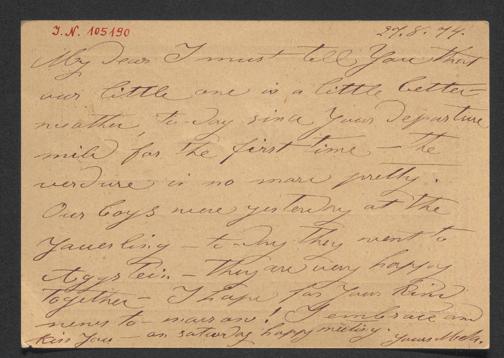 I.N. 105190
27.8.74.
My Dear I must tell You that
our little one is a little better –
weather, to-day since Your departure
mild for the first time – the
verdure is no more pretty.
Our boys were yesterday at the
Yauerling – to-day they went to
Aggstein – they are very happy
together – I hope for Your kind
news to-morrow! I embrace and
kiss You – on saturday happy meeting. Yours